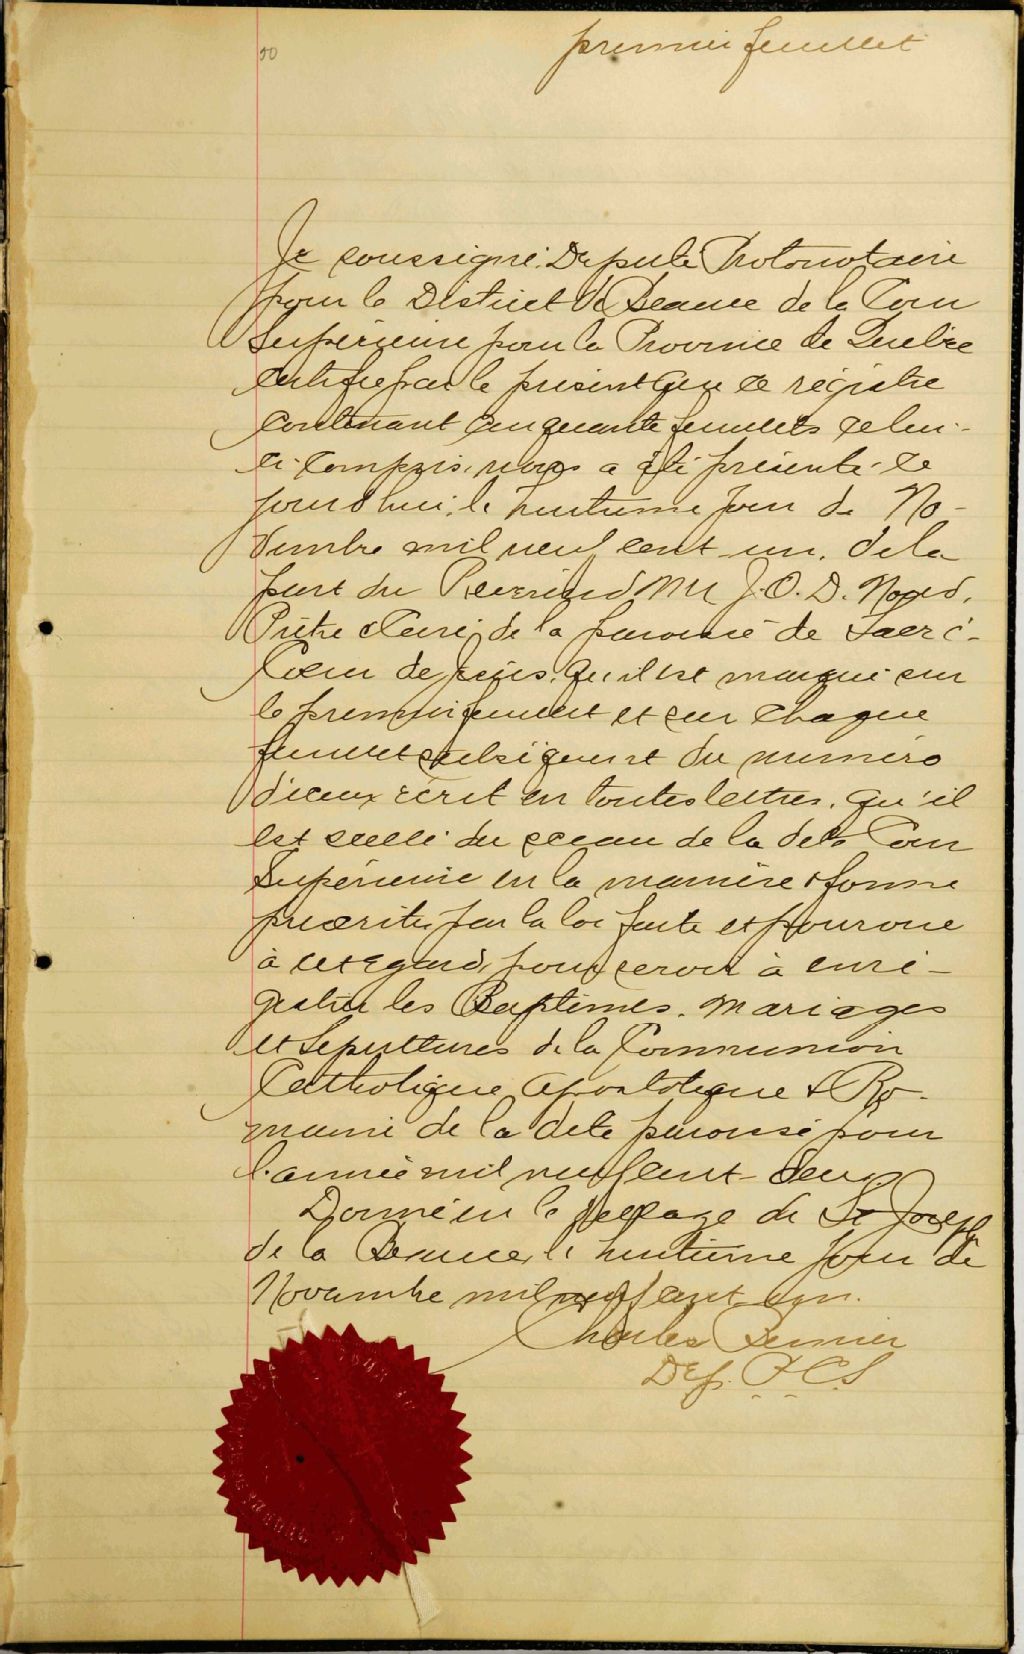 50
premier feuillet
Je soussigné, Député Protonotaire
pour le District de Beauce de la Cour
Supérieure pour la Province de Québec
certifie par le présent que ce régistre
contenant cinquante feuillets celui-
ci compris, nous a été présenté ce
jourd'hui, le huitième jour de No-
vembre mil neuf cent un, de la
part du Révérend Mr J. O. D.
Prêtre & Curé de la paroisse de Sacré-
Coeur de Jésus, qu'il est marqué sur
le premier feuillet et sur chaque
feuillet subséquent du numéro
d'iceux écrit en toutes lettres, qu'il
est scellé du sceau de la dite Cour
Supérieure en la manière & forme
prescrites par la loi faite et pourvue
à cet égard, pour servir à enré-
gistrer les Baptêmes, Mariages
et Sépultures de la Communion
Catholique Apostolique & Ro-
maine de la dite paroisse pour
l'année mil neuf cent deux
Donné en le village de St Joseph
de la Beauce, le huitième jour de
Novembre mil neuf cent un.
Charles
Dep. P.C.S